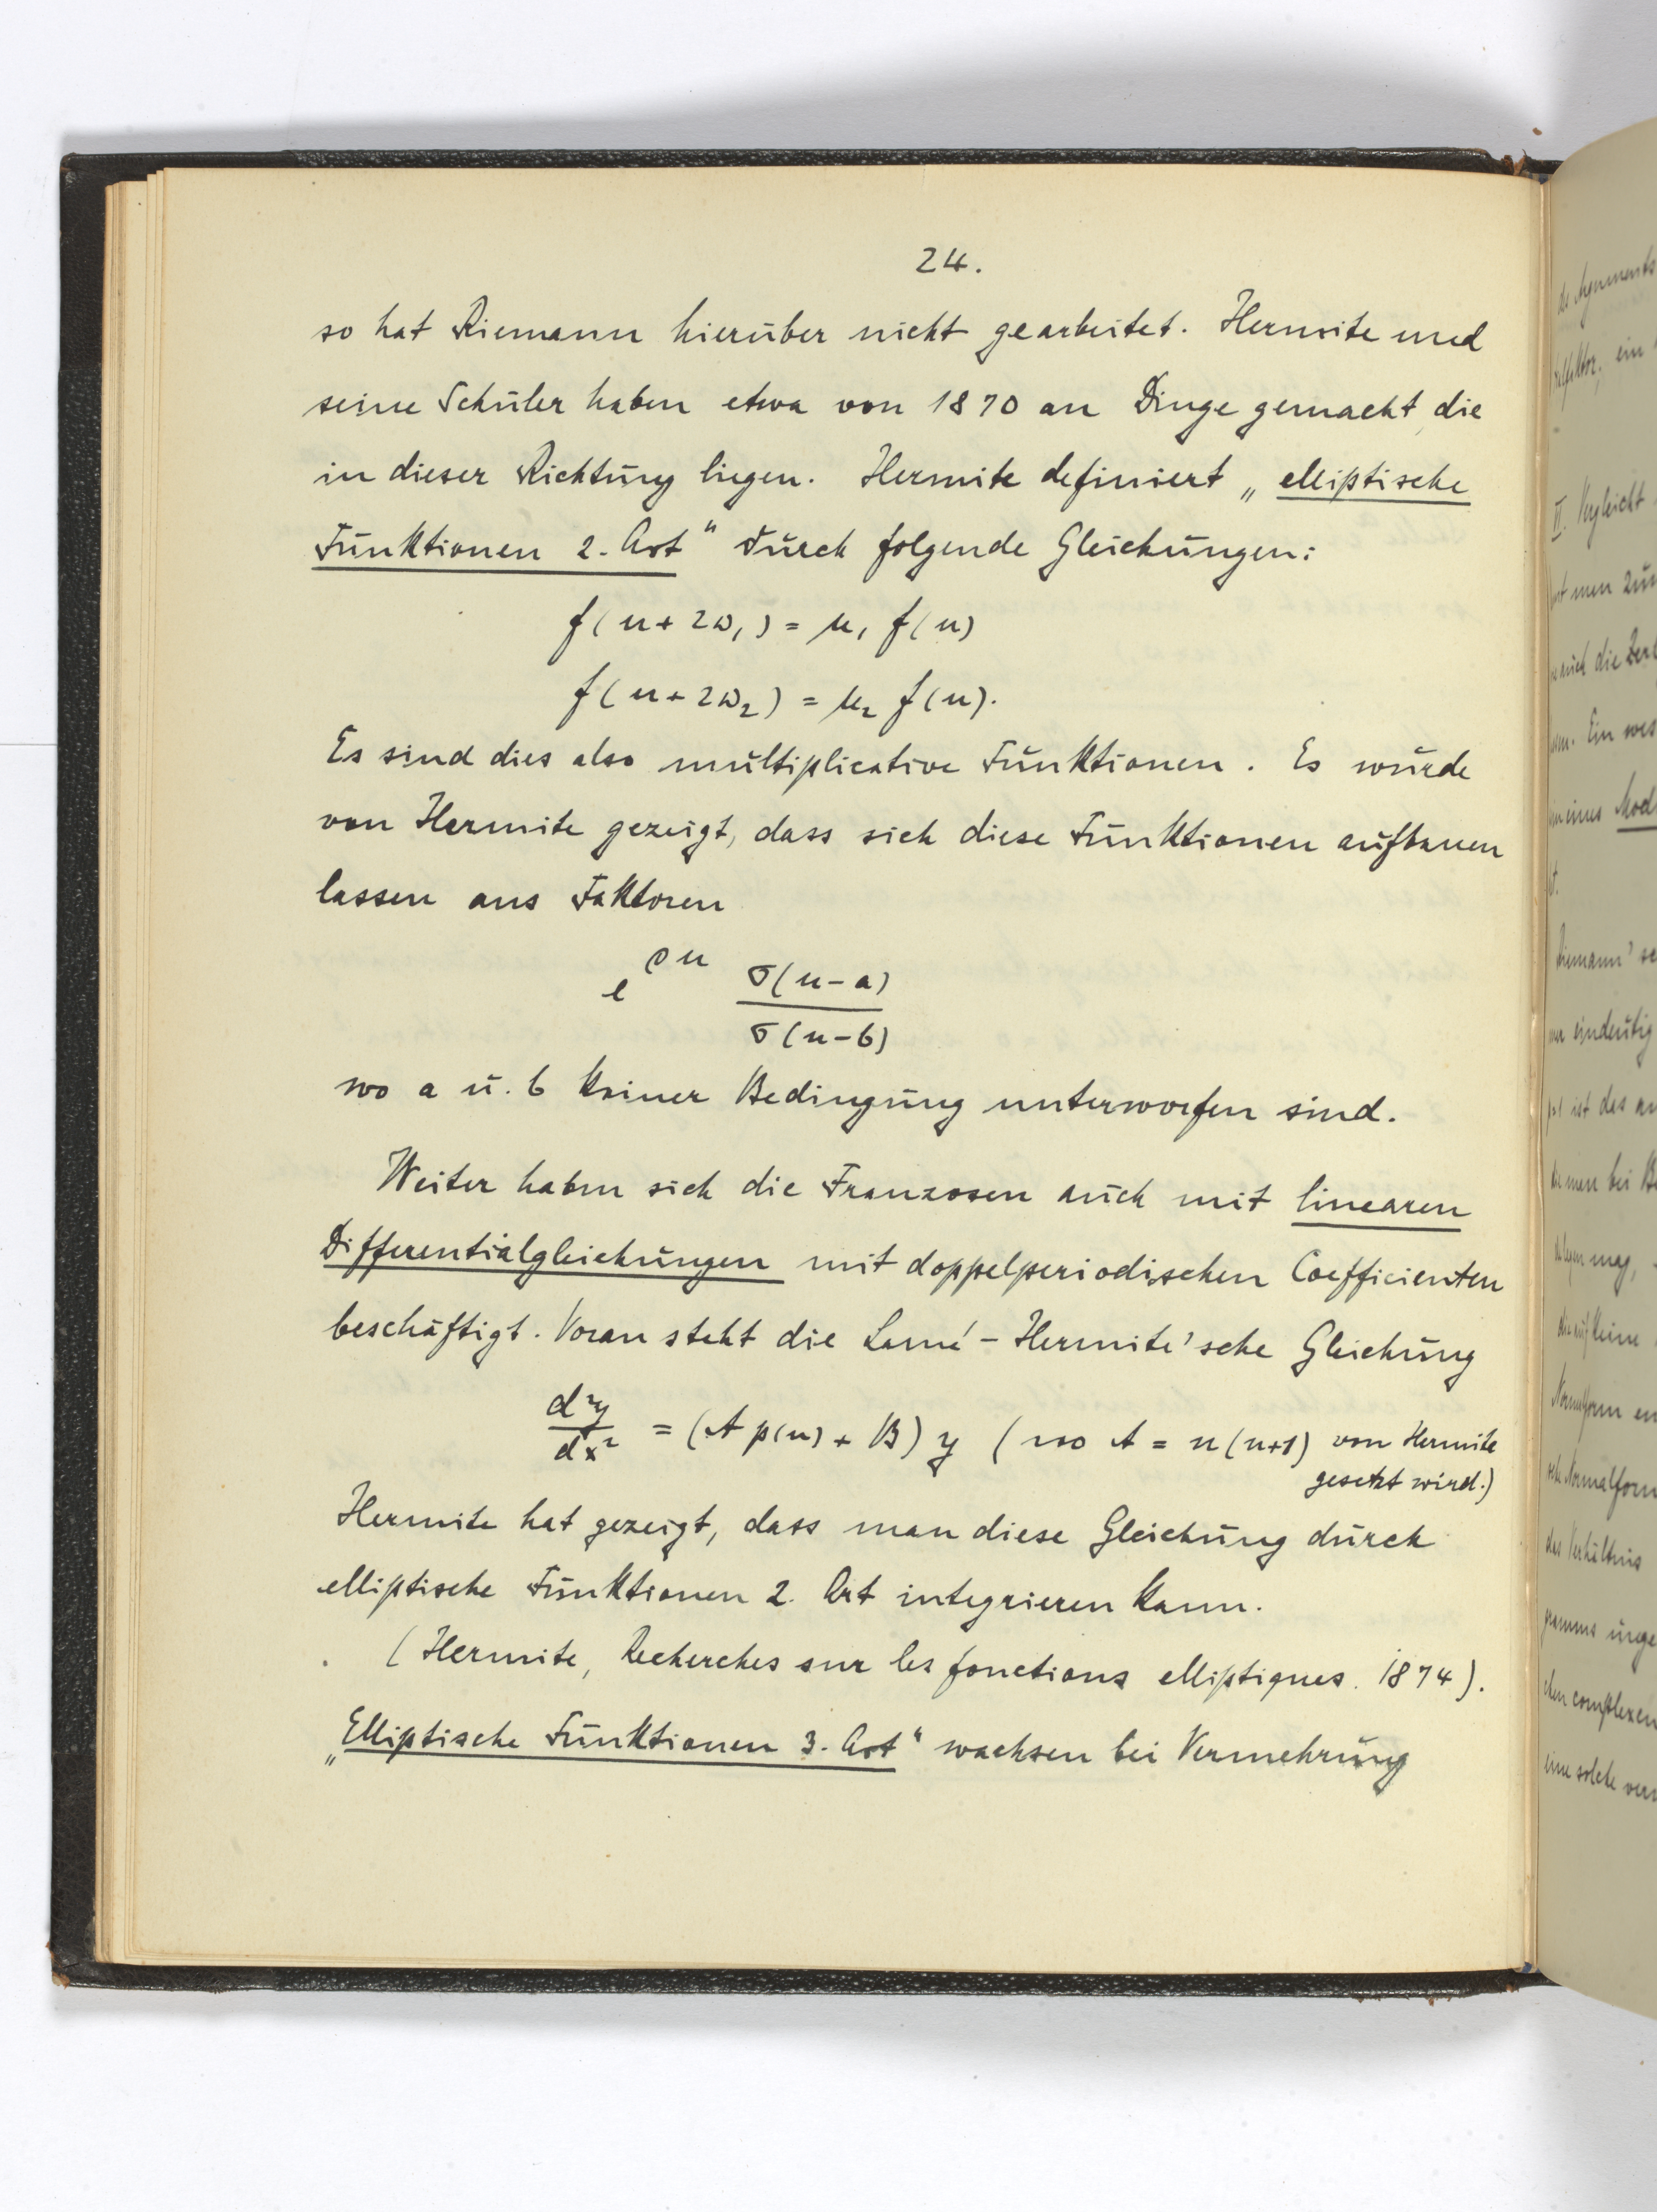 24.
so hat Riemann hierüber nicht gearbeitet. Hermite und
seine Schüler haben etwa von 1870 an Dinge gemacht, die
in dieser Richtung liegen. Hermite definiert „elliptische
Funktionen 2. Art" durch folgende Gleichungen:
f(u + 2ω₁) = μ₁ f(u)
f(u + 2ω₂) = μ₂ f(u).
Es sind dies also multiplicative Funktionen. Es wurde
von Hermite gezeigt, dass sich diese Funktionen aufbauen
lassen aus Faktoren
e^{ρu} σ(u-a)/σ(u-b)
wo a u. b keiner Bedingung unterworfen sind.
Weiter haben sich die Franzosen auch mit linearen
Differentialgleichungen mit doppelperiodischen Coefficienten
beschäftigt. Voran steht die Lamé-Hermite'sche Gleichung
d²y/dx² = (A p(u) + B) y (wo A = n(n+1) von Hermite
gesetzt wird.)
Hermite hat gezeigt, dass man diese Gleichung durch
elliptische Funktionen 2. Art integrieren kann.
(Hermite, Recherches sur les fonctions elliptiques. 1874).
„Elliptische Funktionen 3. Art" wachsen bei Vermehrung
II. Vergleicht
Ein
eines Mod
Riemann' sc
eindeutig
ist das
man bei
mag,
Normalform
Normalform
das Verhältnis
complexen
eine solche